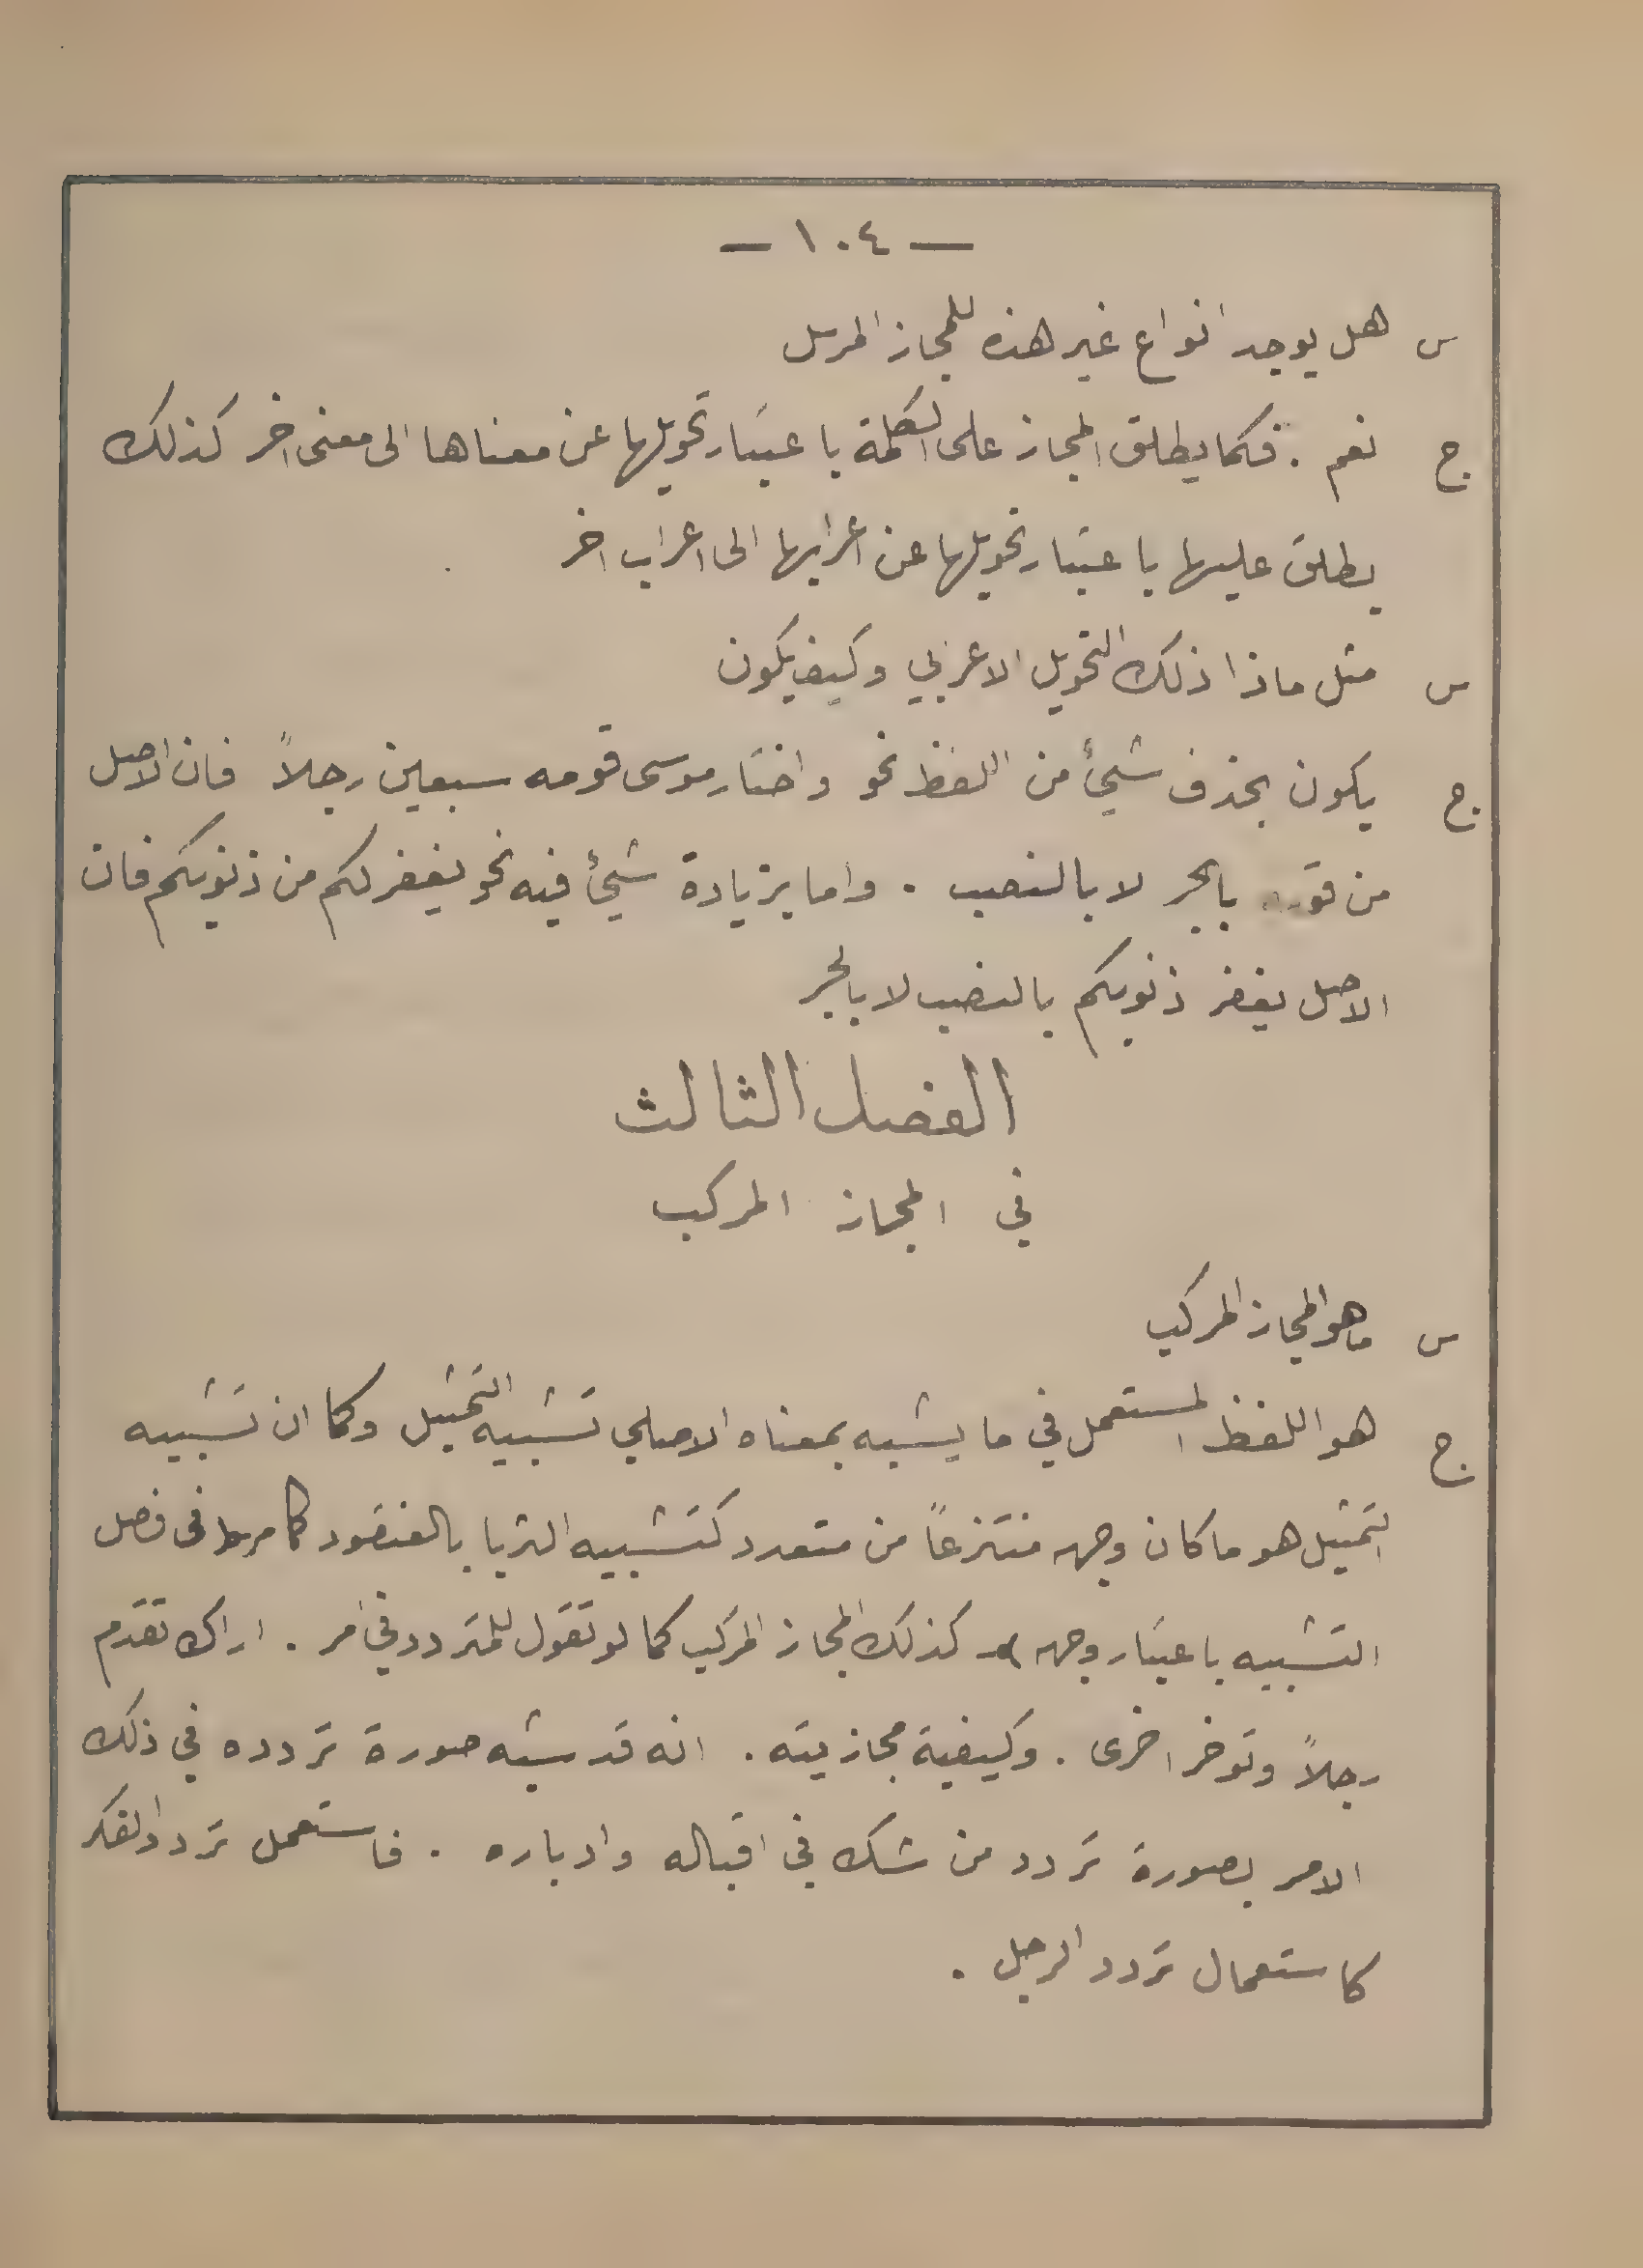 — ١٠٤ —
س هل يوجد انواع غير هذه للمجاز المرسل
ج نعم . فكما يطلق المجاز على الكلمة باعتبار تحويلها عن معناها الى معنى اخر كذلك
يطلق عليها باعتبار تحويلها عن اعرابها الى اعراب اخر
س مثل ماذا ذلك التحويل الاعرابي وكيف يكون
ج يكون بحذف شيئ من اللفظ نحو واختار موسى قومه سبعين رجلاً فان الاصل
من قومه بالجر لا بالنصب . واما بزيادة شيئ فيه نحو يغفر لكم من ذنوبكم فان
الاصل يغفر ذنوبكم بالنصب لا بالجر
الفصل الثالث
في المجاز المركب
س ما هو المجاز المركب
ج هو اللفظ المستعمل في ما يشبه بمعناه الاصلي تشبيه التمثيل وكما ان تشبيه
التمثيل هو ما كان وجهه منتزعاً من متعدد كتشبيه الثريا بالعنقود كما مر في فصل
التشبيه باعتبار وجهه كذلك المجاز المركب كما لو تقول للمتردد في امر . اراك تقدم
رجلاً وتوخر اخرى . وكيفية مجازيته . انه قد شبه صورة تردده في ذلك
الامر بصورة تردد من شك في اقباله وادباره . فاستعمل تردد الفكر
كاستعمال تردد الرجل .